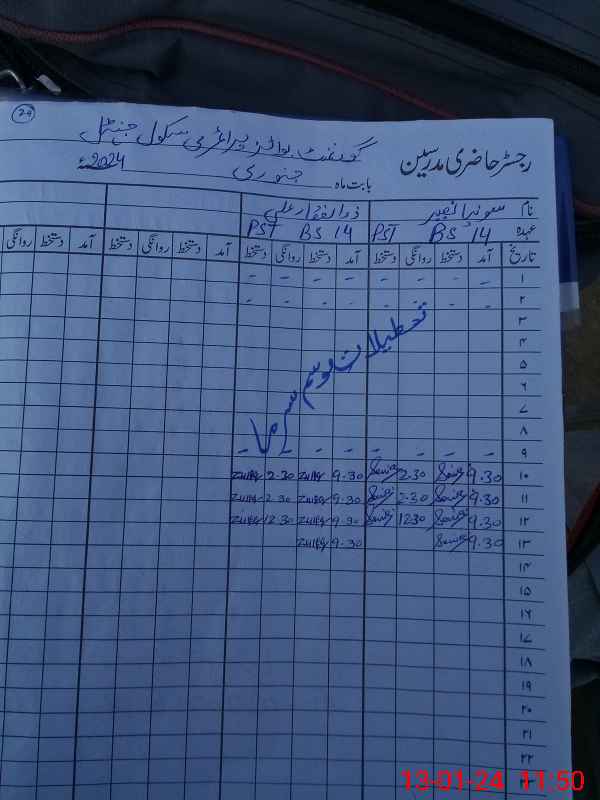 29
رجسٹر حاضری مدرسین گورنمنٹ بوائز پرائمری سکول
بابت ماہ جنوری 2024ء
نام ذوالفقار علی
عہدہ BS 14 PST BS 14 PST
تاریخ آمد دستخط روانگی دستخط آمد دستخط روانگی دستخط آمد دستخط روانگی دستخط آمد دستخط روانگی
۱ - - - - - - - -
۲ - - - - - - - -
۳
۴
۵
۶
۷
۸
تعطیلات موسم سرما
۹ - - - - - - - -
۱۰ 9.30 2.30 9.30 2.30
۱۱ 9.30 2.30 9.30 2.30
۱۲ 9.30 1230 9.30 12.30
۱۳ 9.30 9.30
۱۴
۱۵
۱۶
۱۷
۱۸
۱۹
۲۰
۲۱
۲۲
۲۳
13-01-24 11:50